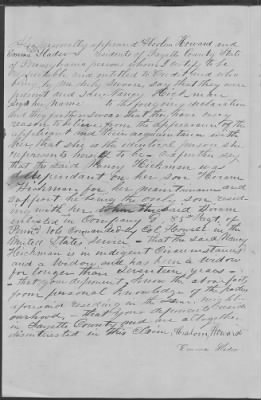 personally appeared Horton Howard and
Emma residents of Fayette County State
of Pennsylvania persons whom I certify to be
respectable and entitled to credit and who
being by me duly sworn say that they were
present and saw Nancy Hickman
sign her name to the foregoing declaration
and they further swear that they have every
reason to believe from the appearance of the
applicant and their acquaintance with
her that she is the identical person she
represents herself to be and further say
that the said Nancy Hickman was
dependant on her son Hiram
Hickman for her maintenance and
support he being the only son
with her when the said Hiram
enlisted in Company 85th Regt. of
Penn'a Vols Commanded by Col. Howell in the
United States Service - that the said Nancy
Hickman is in indigent Circumstances
and a Widow and has been a Widow
for longer than seventeen years -
- that your deponents know the above facts
from personal knowledge of the parties
aforesaid residing in the same neigh-
bourhood - that your deponents reside
in Fayette County and are altogether
disinterested in this Claim. Howard
Emma